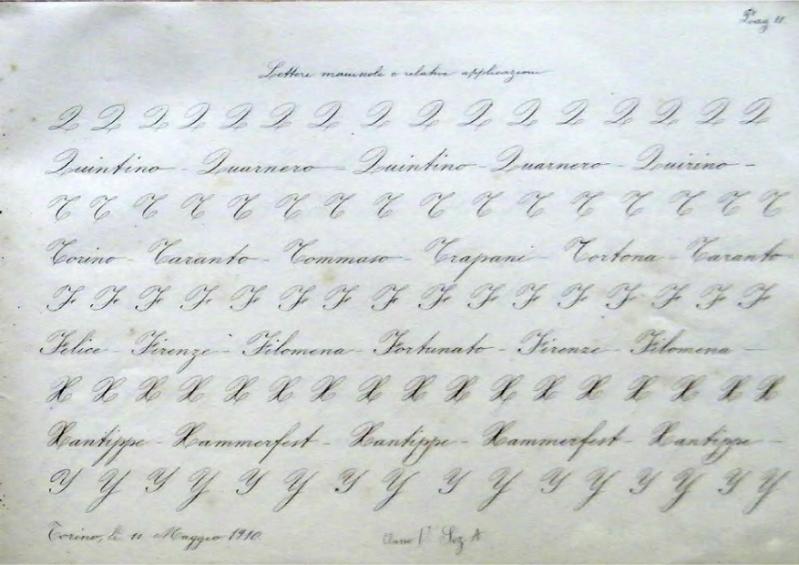 Pag 11.
Lettere maiuscole e relative applicazioni
Q Q Q Q Q Q Q Q Q Q Q Q Q Q Q Q
Quintino - Quarnero - Quintino - Quarnero - Quirino -
T T T T T T T T T T T T T T T T
Torino - Taranto - Tommaso - Trapani - Tortona - Taranto
F F F F F F F F F F F F F F F F
Felice - Firenze - Filomena - Fortunato - Firenze - Filomena -
X X X X X X X X X X X X X X X X X
Xantippe - Hammerfest - Xantippe - Hammerfest - Xantippe -
Y Y Y Y Y Y Y Y Y Y Y Y Y Y Y Y
Torino, li 11 Maggio 1910. Classe 1ª Sez A